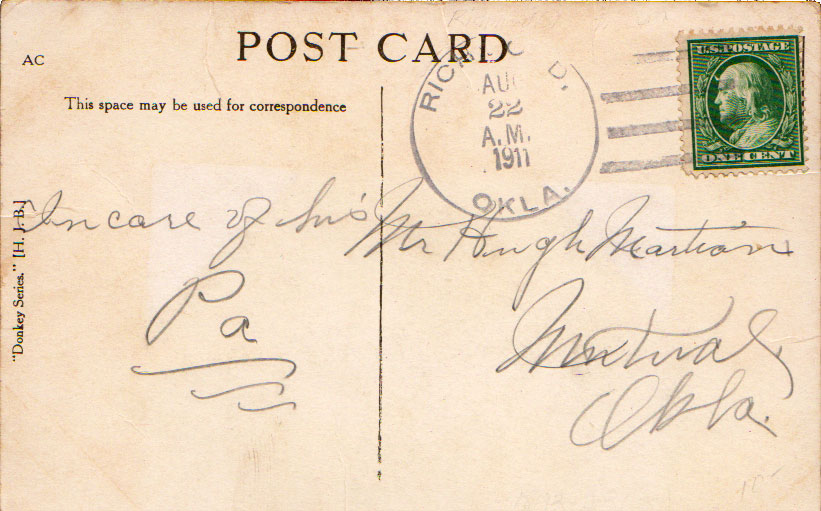 POST CARD
AC
This space may be used for correspondence
"Donkey Series." [H. J. B.]
RICHMOND, OKLA.
AUG
22
A.M.
1911
U.S. POSTAGE
ONE CENT
In care of his
Pa
Mr Hugh
Mutual,
Okla.